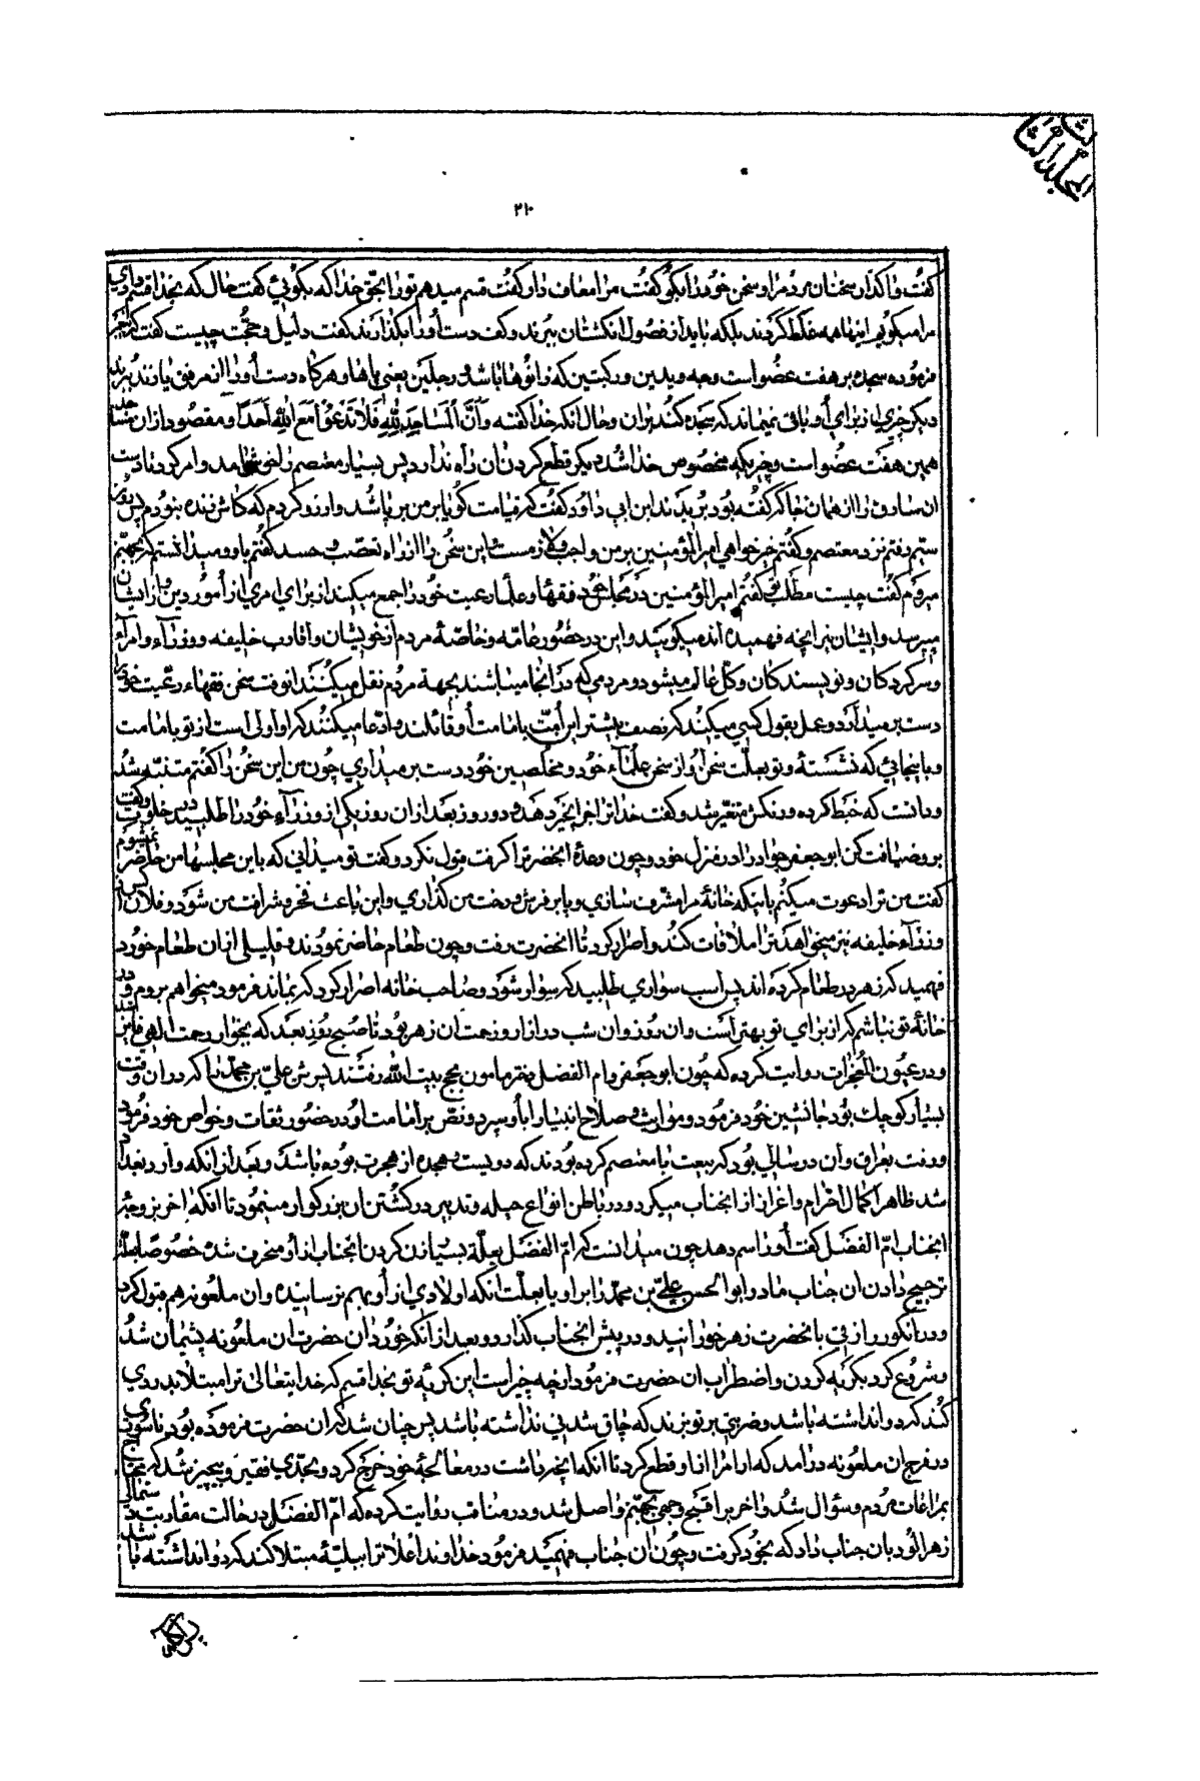 المجلد الثالث
٢١٠
گفت واگذار سخنان مردم را و سخن خود را بگو گفت مرا معاف دار گفت قسم میدهم تو را بحق خدا که بگوئی گفت حال که بخدا قسم دادی
مرا میگویم اینها همه غلط کردند بلکه باید از فصول انگشتان ببرند و کف دست او را بگذارند گفت دلیل و حجت چیست گفت که پیغمبر
فرموده سجده بر هفت عضو است وجه و یدین و رکبتین که زانوها باشد و رجلین یعنی پاها و هرگاه دست او را از مرفق یا زند ببرند
دیگر چیزی از برای او باقی نمیماند که سجده کند بران و حال انکه خدا گفته وَأَنَّ الْمَسَاجِدَ لِلّٰهِ فَلَا تَدْعُوا مَعَ اللّٰهِ أَحَدًا و مقصود ازان مساجد
همین هفت عضو است و چیزیکه مخصوص خدا شد دیگر قطع کردن ان راه ندارد پس بسیار معتصم را خوش امد و امر کرد تا دست
ان سارق را از همان جا که گفته بود بریدند ابن ابی داود گفت که قیامت گویا بر من برپا شد و ارزو کردم که کاش زنده نبودم پس روز
سیم رفتم نزد معتصم و گفتم خیرخواهی امیر المؤمنین بر من واجب و لازمست و این سخن را از راه تعصب و حسد گفتم باو و میدانستم که بجهنم
میروم گفت چیست مطلب تو گفتم امیر المؤمنین در مجلس خود فقها و علماء رعیت خود را جمع میکند از برای امری از امور دین و از ایشان
میپرسد و ایشان نیز انچه فهمیده اند میگویند و این در حضور عامه و خاصهٔ مردم از خویشان و اقارب خلیفه و وزراء و امراء
و سرکردگان و نویسندگان وکل عالم میشود و مردمی که در انجا میباشند بجهة مردم نقل میکنند انوقت سخن فقهاء رعیت خود را
دست بر میدارد و عمل بقول کسی میکند که نصف بیشتر این امت بامامت او قائلند و ادعا میکنند که او اولی است از تو بامامت
و باینجائی که نشستهٔ و تو بعلت سخن او از سخن علماء خود و مخلصین خود دست بر میداری چون من این سخن را گفتم متنبه شد
و دانست که خبط کرده و رنگش متغیر شد و گفت خدا ترا جزا بخیر دهد و دو روز بعد ازان روز یکی از وزراء خود را طلبید در خلوت و گفت
برو ضیافت کن ابو جعفر جواد را در منزل خود و چون وعدهٔ انحضرت را گرفت قبول نکرد و گفت تو میدانی که باین مجلسها من حاضر نمیشوم
گفت من ترا دعوت میکنم باینکه خانهٔ مرا مشرف سازی و پا بر فرش و رخت من گذاری و این باعث فخر و شرافت من شود و فلان کس از
وزراء خلیفه نیز میخواهد ترا ملاقات کند و اصرار کرد تا انحضرت رفت و چون طعام حاضر نمودند و قلیلی از ان طعام خورد
فهمید که زهر در طعام کرده اند پس اسب سواری طلبید که سوار شود و صاحب خانه اصرار کرد که بماند فرمود میخواهم بروم و در
خانهٔ تو نباشم که از برای تو بهتر است و ان روز و ان شب در ازار و زحمت ان زهر بود تا صبح روز بعد که بجوار رحمت الهی فایز شد
و در عیون المعجزات روایت کرده که چون ابو جعفر و ام الفضل دختر مامون بحج بیت الله رفتند پسرش علی بن محمد را که دران وقت
بسیار کوچک بود جانشین خود فرمود و مواریث و صلاح انبیا را باو سپرد و نص بر امامت او در حضور ثقات و خواص خود فرمود
و رفت بعراق و ان در سالی بود که بیعت با معتصم کرده بودند که دویست و هجده از هجرت بوده باشد و بعد از انکه وارد بغداد
شد ظاهرا کمال احترام و اعزاز از انجناب میکرد و در باطن انواع حیله و تدبیر در کشتن ان بزرگوار مینمود تا انکه اخر بزوجهٔ
انجناب ام الفضل گفت او را سم دهد چون میدانست که ام الفضل بعلة بسیار زن کردن انجناب از او منحرف شده خصوصا بعلة
ترجیح دادن ان جناب مادر ابو الحسن علی بن محمد را بر او یا بعلت انکه اولادی از او بهم نرسانیده و ان ملعونه هم قبول کرد
و در انگور رازقی بانحضرت زهر خورانید و در پیش انجناب گذارد و بعد از انکه خورد ان حضرت ان ملعونه پشیمان شد
و شروع کرد بگریه کردن و اضطراب ان حضرت فرمود از چه چیز است این گریهٔ تو بخدا قسم که خدایتعالی ترا مبتلا بدردی
کند که دوا نداشته باشد و ضربتی بر تو بزند که چاق شدنی نداشته باشد پس چنان شد که ان حضرت فرموده بود ناسوری
در فرج ان ملعونه درامد که ارام را از او قطع کرد تا انکه انچه داشت در معالجهٔ خود خرج کرد و بحدی فقیر و بیچیز شد که محتاج
بمراعات مردم و سؤال شد و اخر باقبح وجهی بجهنم واصل شد و در مناقب روایت کرده که ام الفضل در حالت مقاربت دستمالی
زهرالود بان جناب داد که بخود گرفت و چون ان جناب فهمید فرمود خداوند اعلا ترا ببلیهٔ مبتلا کند که دوا نداشته باشد